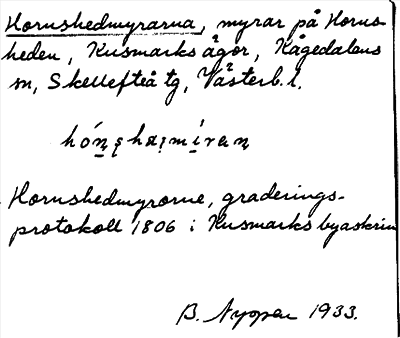 Hornshedmyrarna, myrar på Horns-
heden, Kusmarks ägor, Kågedalens
sn, Skellefteå tg, Västerb. l.
Hornshedmyrorne, graderings-
protokoll 1806 i Kusmarks byaskrin
B. Nyman 1933.